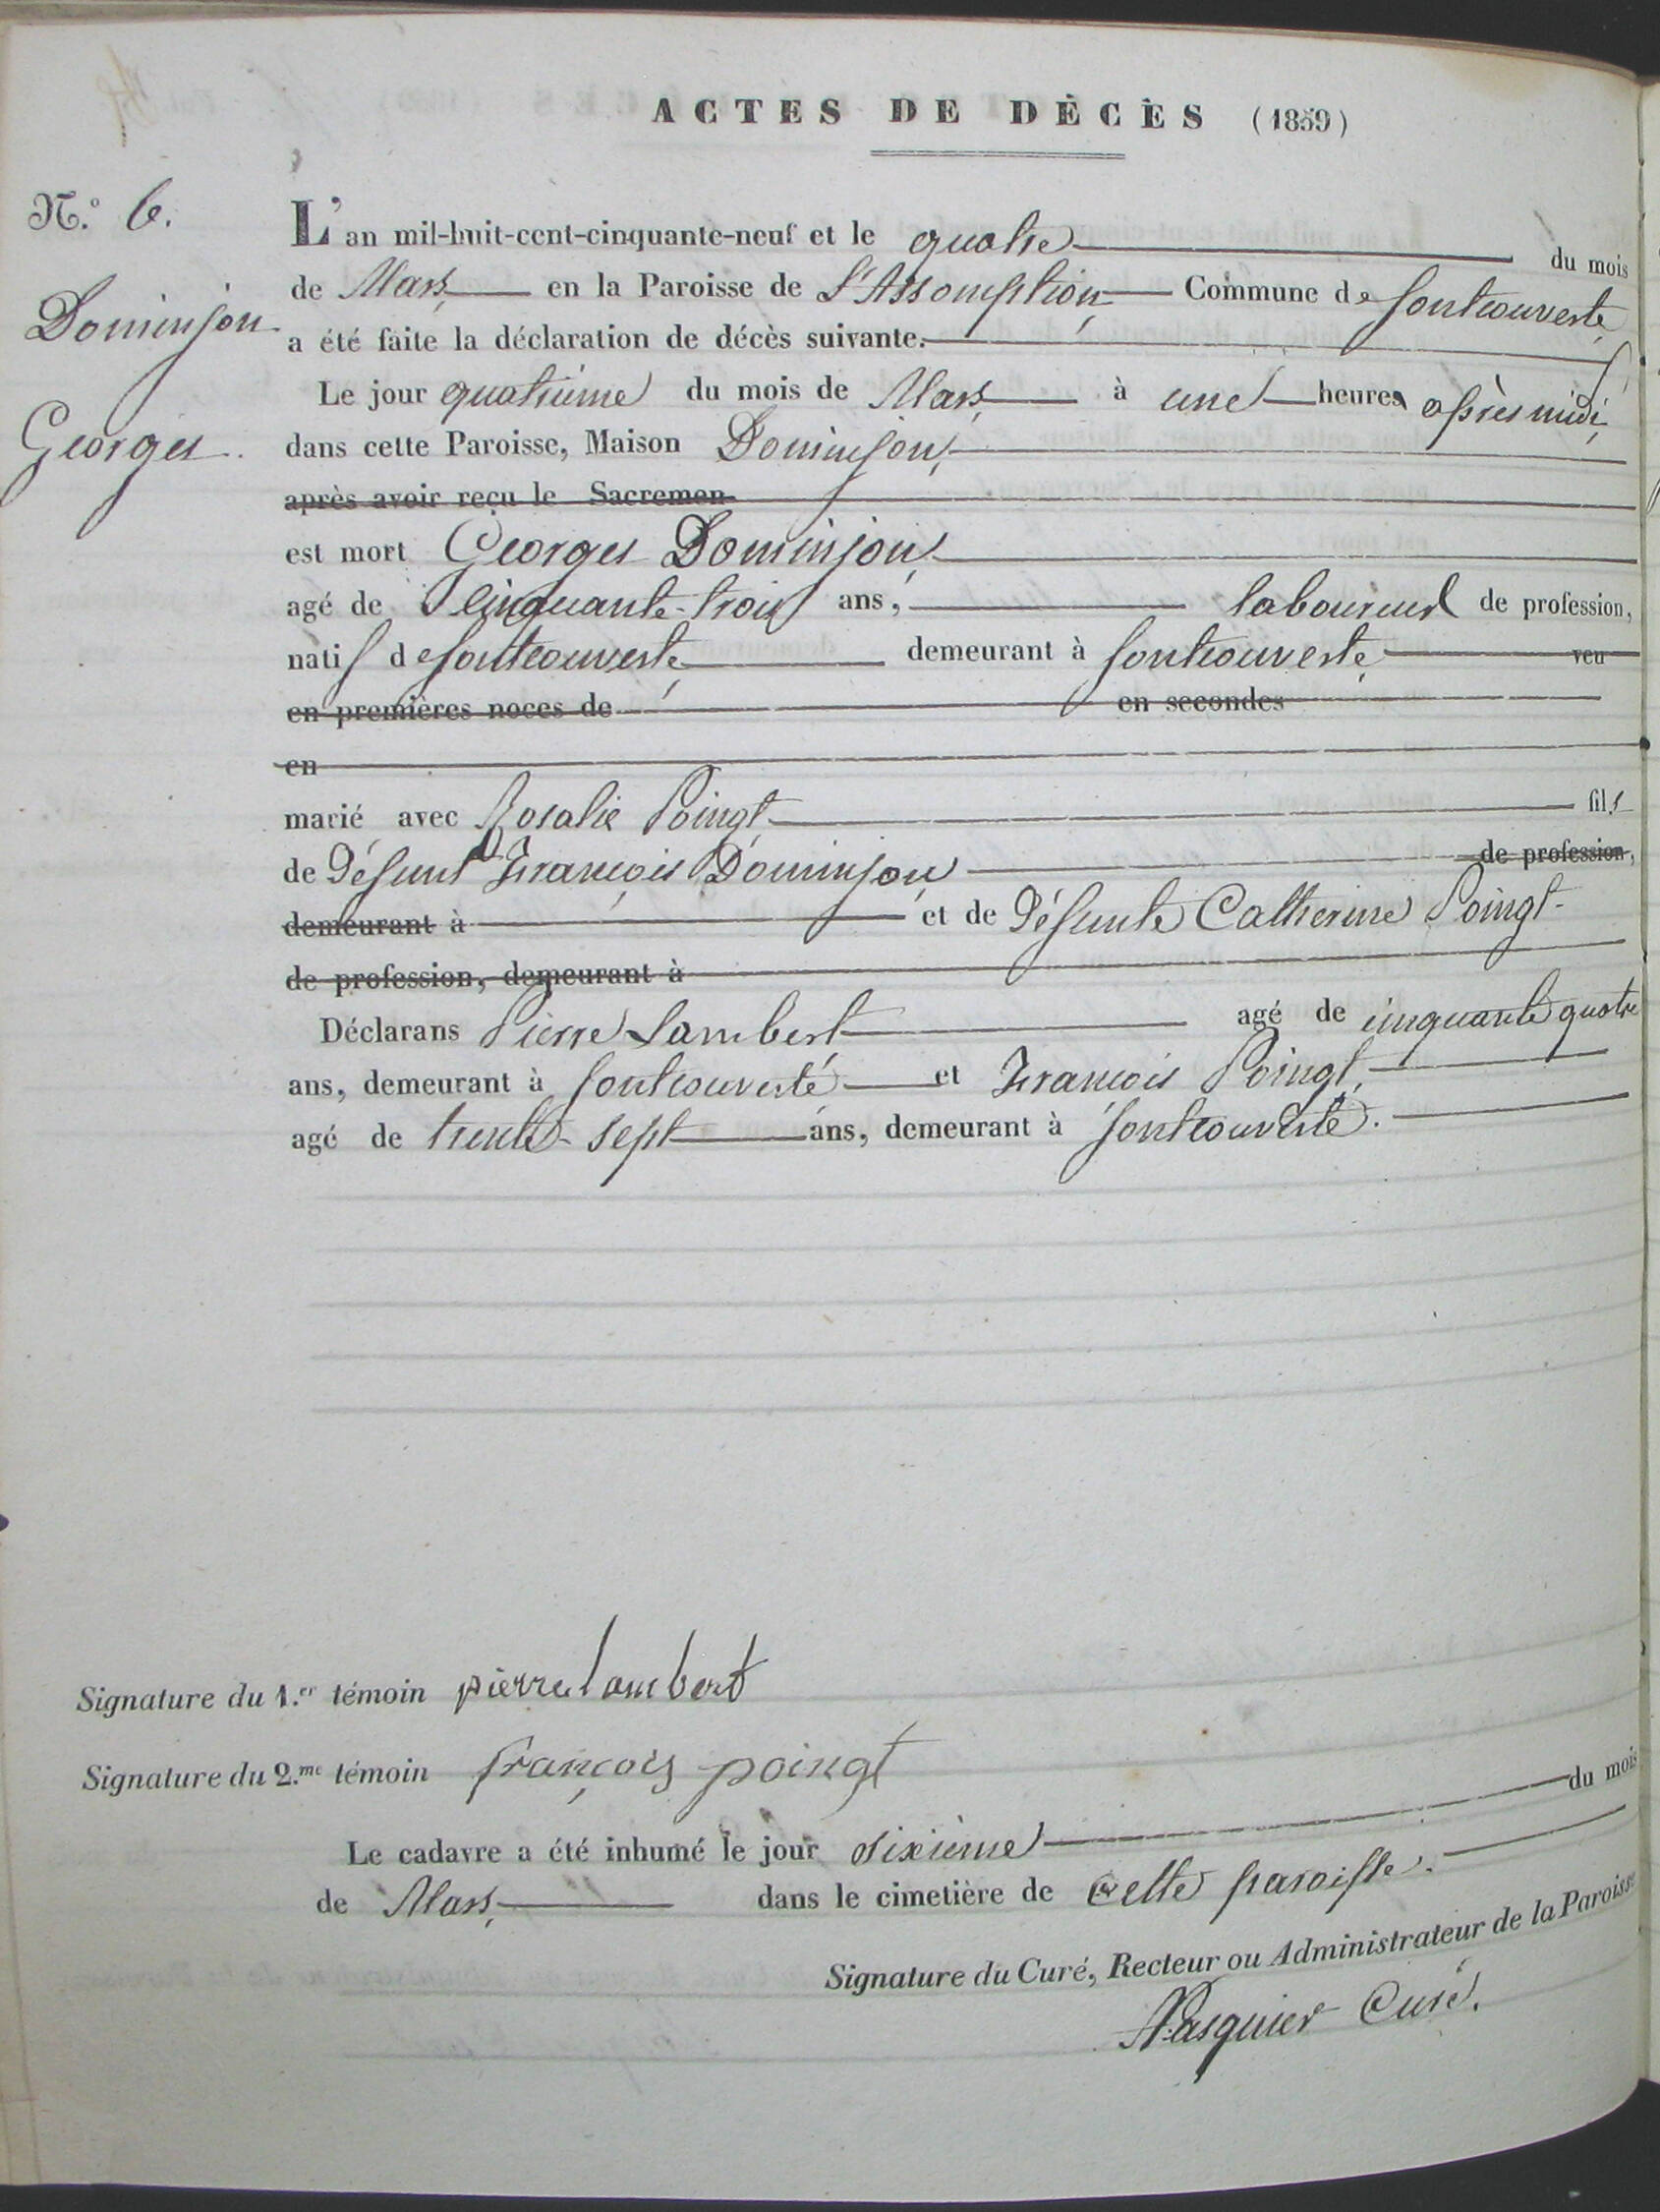 ACTES DE DÉCÈS (1859)
N.º 6.
Dominjon
Georges.
L'an mil-huit-cent-cinquante-neuf et le quatre du mois
de Mars en la Paroisse de L'Assomption Commune de Fontcouverte
a été faite la déclaration de décès suivante.
Le jour quatrième du mois de Mars à une heures après midi
dans cette Paroisse, Maison Dominjon,
après avoir reçu le Sacremen
est mort Georges Dominjon
agé de Cinquante-trois ans, laboureur de profession,
natif de Fontcouverte demeurant à Fontcouverte veu
en premières noces de en secondes
en
marié avec Rosalie Poingt fils
de Défunt François Dominjon de profession,
demeurant à et de Défunte Catherine Poingt
de profession, demeurant à
Déclarans Pierre Lambert agé de cinquante quatre
ans, demeurant à Fontcouverte et François Poingt,
agé de trente-sept ans, demeurant à Fontcouverte.
Signature du 1.er témoin pierre lambert
Signature du 2.me témoin françois poingt
Le cadavre a été inhumé le jour sixième du mois
de Mars dans le cimetière de cette paroisse.
Signature du Curé, Recteur ou Administrateur de la Paroisse
Pasquier Curé.